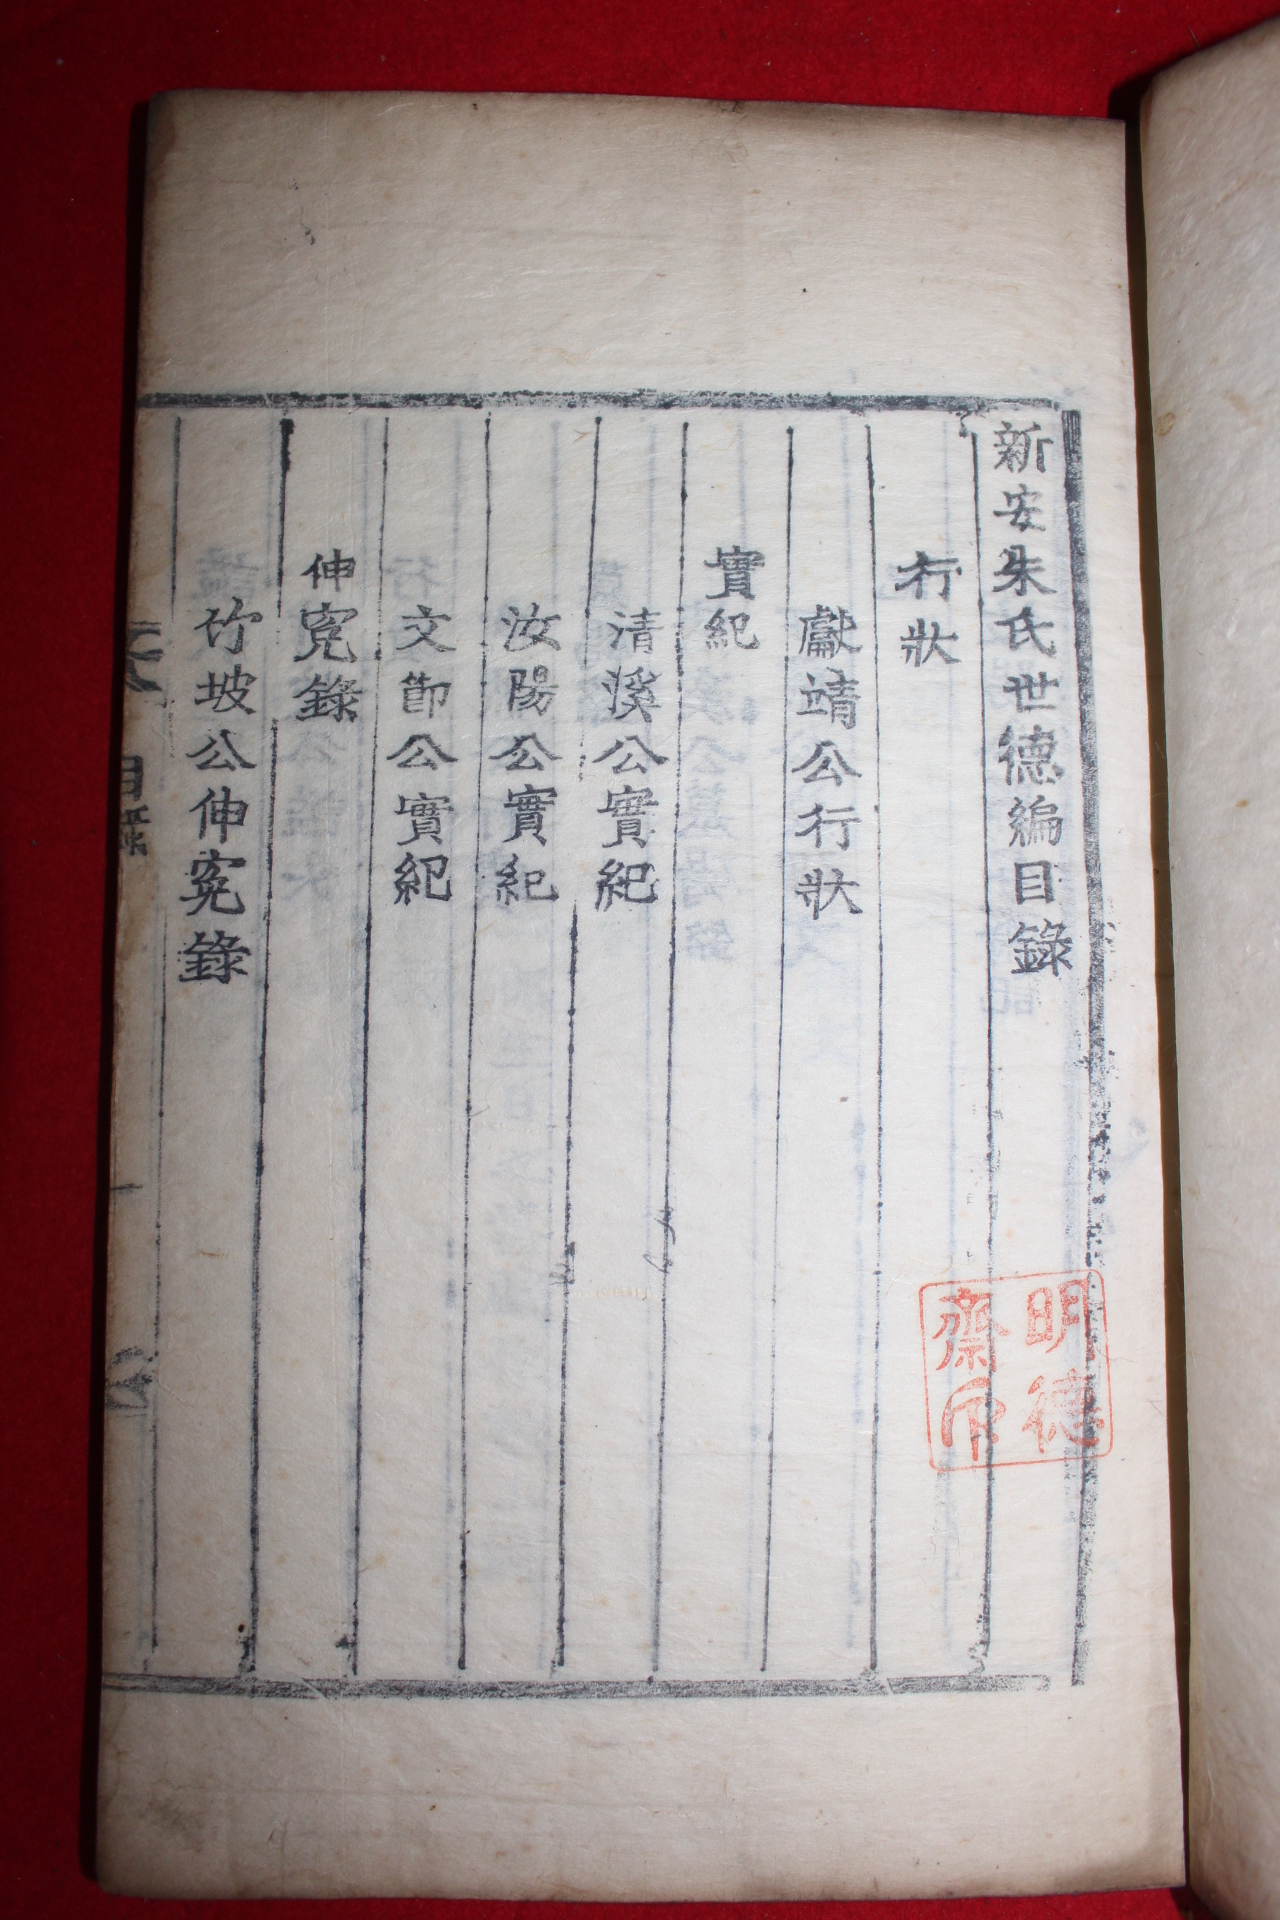 新安朱氏世德編目錄
行狀
獻靖公行狀
實紀
清溪公實紀
汝陽公實紀
文節公實紀
伸寃錄
竹坡公伸寃錄
目錄
一
明德
齋